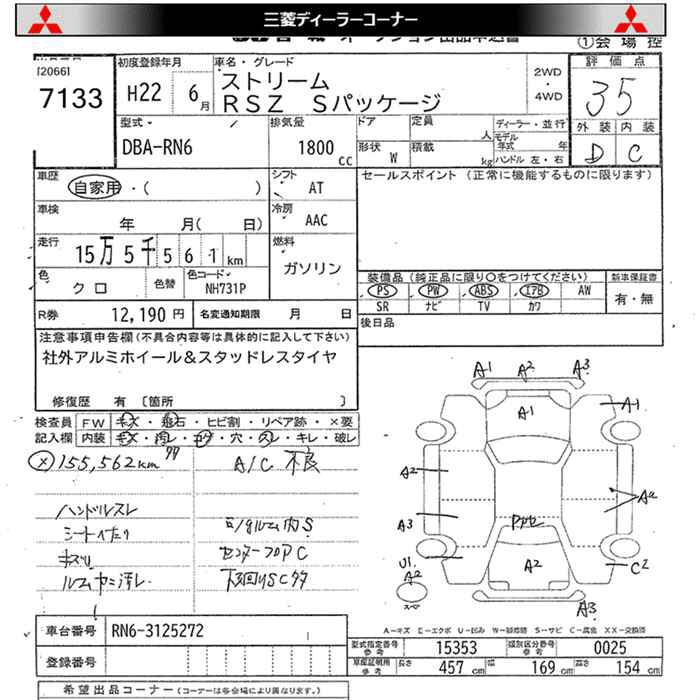 三菱ディーラーコーナー
①会場控
[20661
7133
初度登録年月
H22 6月
車名・グレード
ストリーム
RSZ Sパッケージ
2WD
・
4WD
評価点
35
外装 内装
D C
型式
DBA-RN6
排気量
1800 cc
ドア
形状 W
定員 人
積載 kg
ディーラー・並行
モデル年式 年
ハンドル 左・右
車歴
自家用・( )
シフト
AT
セールスポイント (正常に機能するものに限ります)
車検
年 月( 日)
冷房
AAC
走行
15万5千561km
燃料
ガソリン
色
クロ
色替
色コード
NH731P
装備品 (純正品に限り○をつけてください)
PS PW ABS エアB AW
SR ナビ TV カワ
新車保証書
有・無
R券
12,190 円
名変通知期限 月 日
後日品
注意事項申告欄(不具合内容等は具体的に記入して下さい)
社外アルミホイール&スタッドレスタイヤ
修復歴 有 [箇所 ]
検査員 FW キズ・飛石・ヒビ割・リペア跡・×要
記入欄 内装 キズ・汚レ・コゲ・穴・スレ・キレ・破レ
155,562km
A/C 不良
ハンドルスレ
シートヘタリ
キズリ
ルームヤニ汚レ
A1 A2 A3
A1
A1
A2
A2
A3
U1
A2
A2
C2
A3
車台番号 RN6-3125272
登録番号
A-キズ E-エクボ U-凹み W-補修跡 S-サビ C-腐食 XX-交換済
型式指定番号 参考 15353
類別区分番号 参考 0025
車庫証明用 参考 長さ 457 cm 幅 169 cm 高さ 154 cm
希望出品コーナー (コーナーは各会場により異なります。)